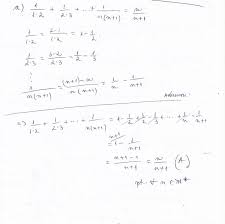 a) 1/1·2 + 1/2·3 + ... + 1/n(n+1) = n/n+1
1/1·2 = 2-1/1·2 = 1 - 1/2
1/2·3 = 3-2/2·3 = 1/2 - 1/3
⋮
1/n(n+1) = (n+1)-n/n(n+1) = 1/n - 1/n+1
=> 1/1·2 + 1/2·3 + ... + 1/n(n+1) = 1 - 1/2 + 1/2 - 1/3 + ... + 1/n - 1/n+1
= 1 - 1/n+1
= n+1-1/n+1 = n/n+1 (A)
pt. ∀ n ∈ N*